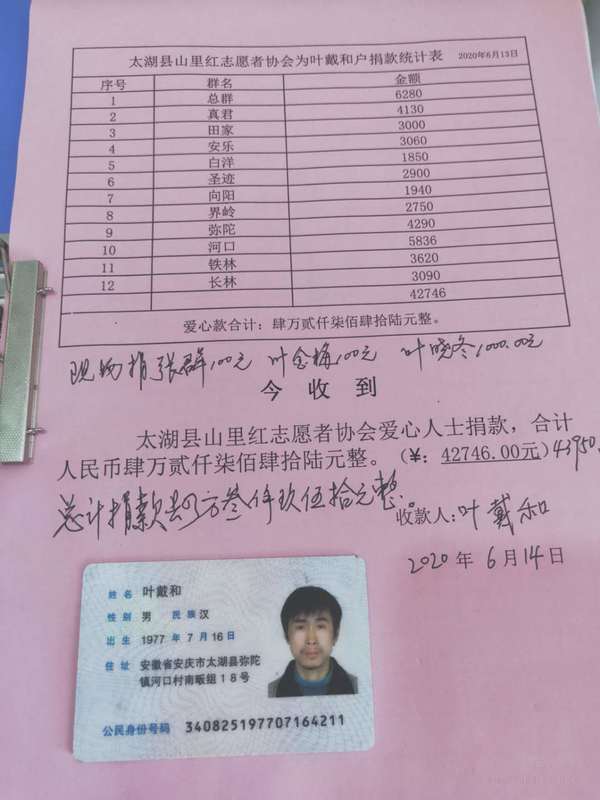 太湖县山里红志愿者协会为叶戴和户捐款统计表 2020年6月13日
序号 群名 金额
1 总群 6280
2 真君 4130
3 田家 3000
4 安乐 3060
5 白洋 1850
6 圣迹 2900
7 向阳 1940
8 界岭 2750
9 弥陀 4290
10 河口 5836
11 铁林 3620
12 长林 3090
42746
爱心款合计：肆万贰仟柒佰肆拾陆元整。
现场捐张群100元 叶金梅100元 叶晓冬1000.00元
今收到
太湖县山里红志愿者协会爱心人士捐款，合计
人民币肆万贰仟柒佰肆拾陆元整。（￥：42746.00元）43950.
总计捐款 万叁仟玖伍拾元整。
收款人：叶戴和
2020年6月14日
姓名 叶戴和
性别 男 民族 汉
出生 1977 年 7 月 16 日
住址 安徽省安庆市太湖县弥陀
镇河口村南畈组18号
公民身份号码 340825197707164211